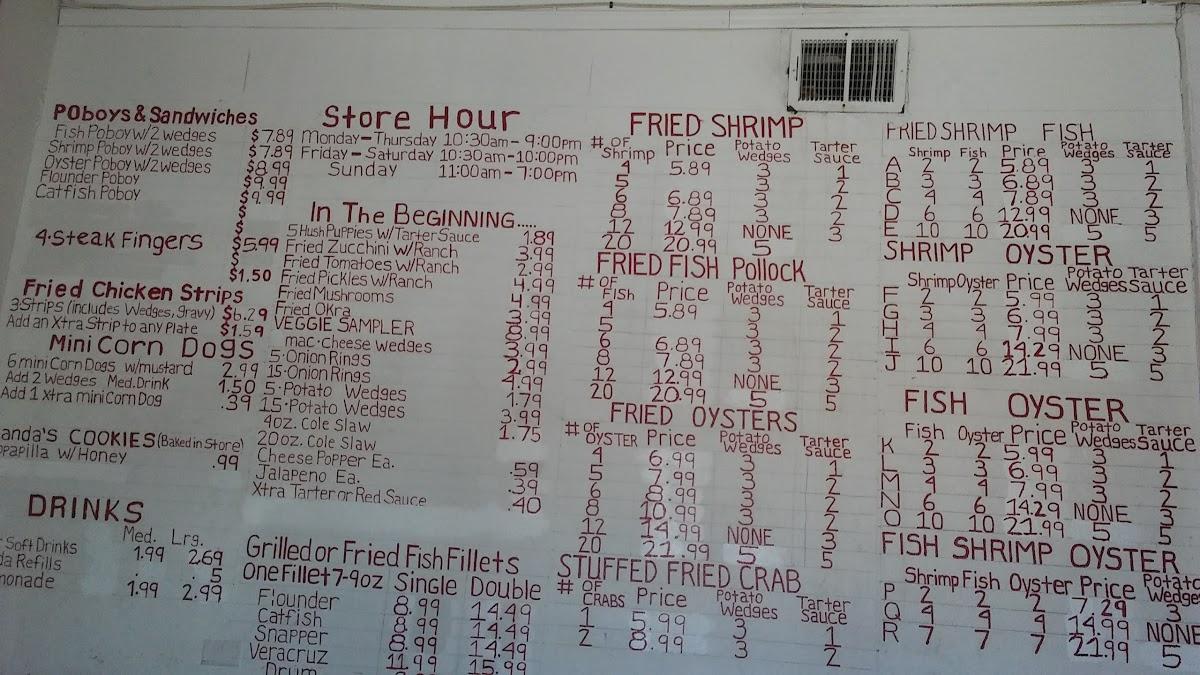 POboys & Sandwiches
Fish Poboy w/2 wedges $7.89
Shrimp Poboy w/2 wedges $7.89
Oyster Poboy w/2 wedges $8.99
Flounder Poboy $9.99
Catfish Poboy $9.99
$
$
4-Steak Fingers $5.99
$
$1.50
Fried Chicken Strips
3 Strips (includes Wedges, gravy) $6.29
Add an Xtra Strip to any Plate $1.59
Mini Corn Dogs
6 mini Corn Dogs w/mustard 2.99
Add 2 Wedges Med. Drink 1.50
Add 1 xtra mini Corn Dog .39
anda's COOKIES (Baked in Store)
opapilla w/ Honey .99
DRINKS
Med. Lrg.
Soft Drinks 1.99 2.69
da Refills . .5
monade 1.99 2.99
Store Hour
Monday-Thursday 10:30am-9:00pm
Friday-Saturday 10:30am-10:00pm
Sunday 11:00am-7:00pm
In The Beginning.....
5 Hush Puppies w/Tarter Sauce 1.89
Fried Zucchini w/Ranch 3.99
Fried Tomatoes w/Ranch 2.99
Fried Pickles w/Ranch 4.99
Fried Mushrooms 4.99
Fried Okra 3.99
VEGGIE SAMPLER 8.99
mac-cheese wedges 3.99
5-Onion Rings 2.99
15-Onion Rings 4.99
5-Potato Wedges 1.79
15-Potato Wedges 3.99
4oz. Cole Slaw 1.75
20oz. Cole Slaw
Cheese Popper Ea. .59
Jalapeno Ea. .39
Xtra Tarter or Red Sauce .40
Grilled or Fried Fish Fillets
One Fillet 7-9oz Single Double
Flounder 8.99 14.49
Catfish 8.99 14.49
Snapper 8.99 14.49
Veracruz 11.99 15.99
Drum
FRIED SHRIMP
# OF Shrimp Price Potato Wedges Tarter Sauce
4 5.89 3 1
5 3 2
6 6.89 3 2
8 7.89 3 2
12 12.99 NONE 3
20 20.99 5
FRIED FISH Pollock
# OF Fish Price Potato Wedges Tarter Sauce
4 5.89 3 1
5 3 2
6 6.89 3 2
8 7.89 3 2
12 12.99 NONE 3
20 20.99 5 5
FRIED OYSTERS
# OF OYSTER Price Potato Wedges Tarter Sauce
4 6.99 3 1
5 7.99 3 2
6 8.99 3 2
8 10.99 3 2
12 14.99 NONE 3
20 21.99 5 5
STUFFED FRIED CRAB
# OF CRABS Price Potato Wedges Tarter Sauce
1 5.99 3 1
2 8.99 3 2
FRIED SHRIMP FISH
Shrimp Fish Price Potato Wedges Tarter Sauce
A 2 2 5.89 3 1
B 3 3 6.89 3 2
C 4 4 7.89 3 2
D 6 6 12.99 NONE 3
E 10 10 20.99 5 5
SHRIMP OYSTER
Shrimp Oyster Price Potato Wedges Tarter Sauce
F 2 2 5.99 3 1
G 3 3 6.99 3 2
H 4 4 7.99 3 2
I 6 6 14.29 NONE 3
J 10 10 21.99 5 5
FISH OYSTER
Fish Oyster Price Potato Wedges Tarter Sauce
K 2 2 5.99 3 1
L 3 3 6.99 3 2
M 4 4 7.99 3 2
N 6 6 14.29 NONE 3
O 10 10 21.99 5 5
FISH SHRIMP OYSTER
Shrimp Fish Oyster Price Potato Wedges
P 2 2 2 7.29 3
Q 4 4 4 14.99 NONE
R 7 7 7 21.99 5